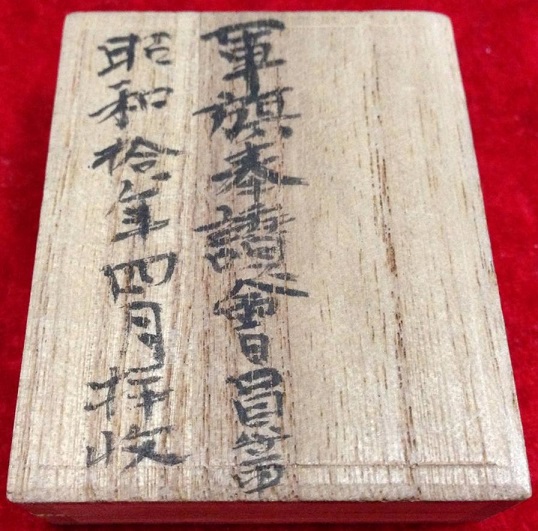 軍旗奉請會員章
昭和拾年四月拝收